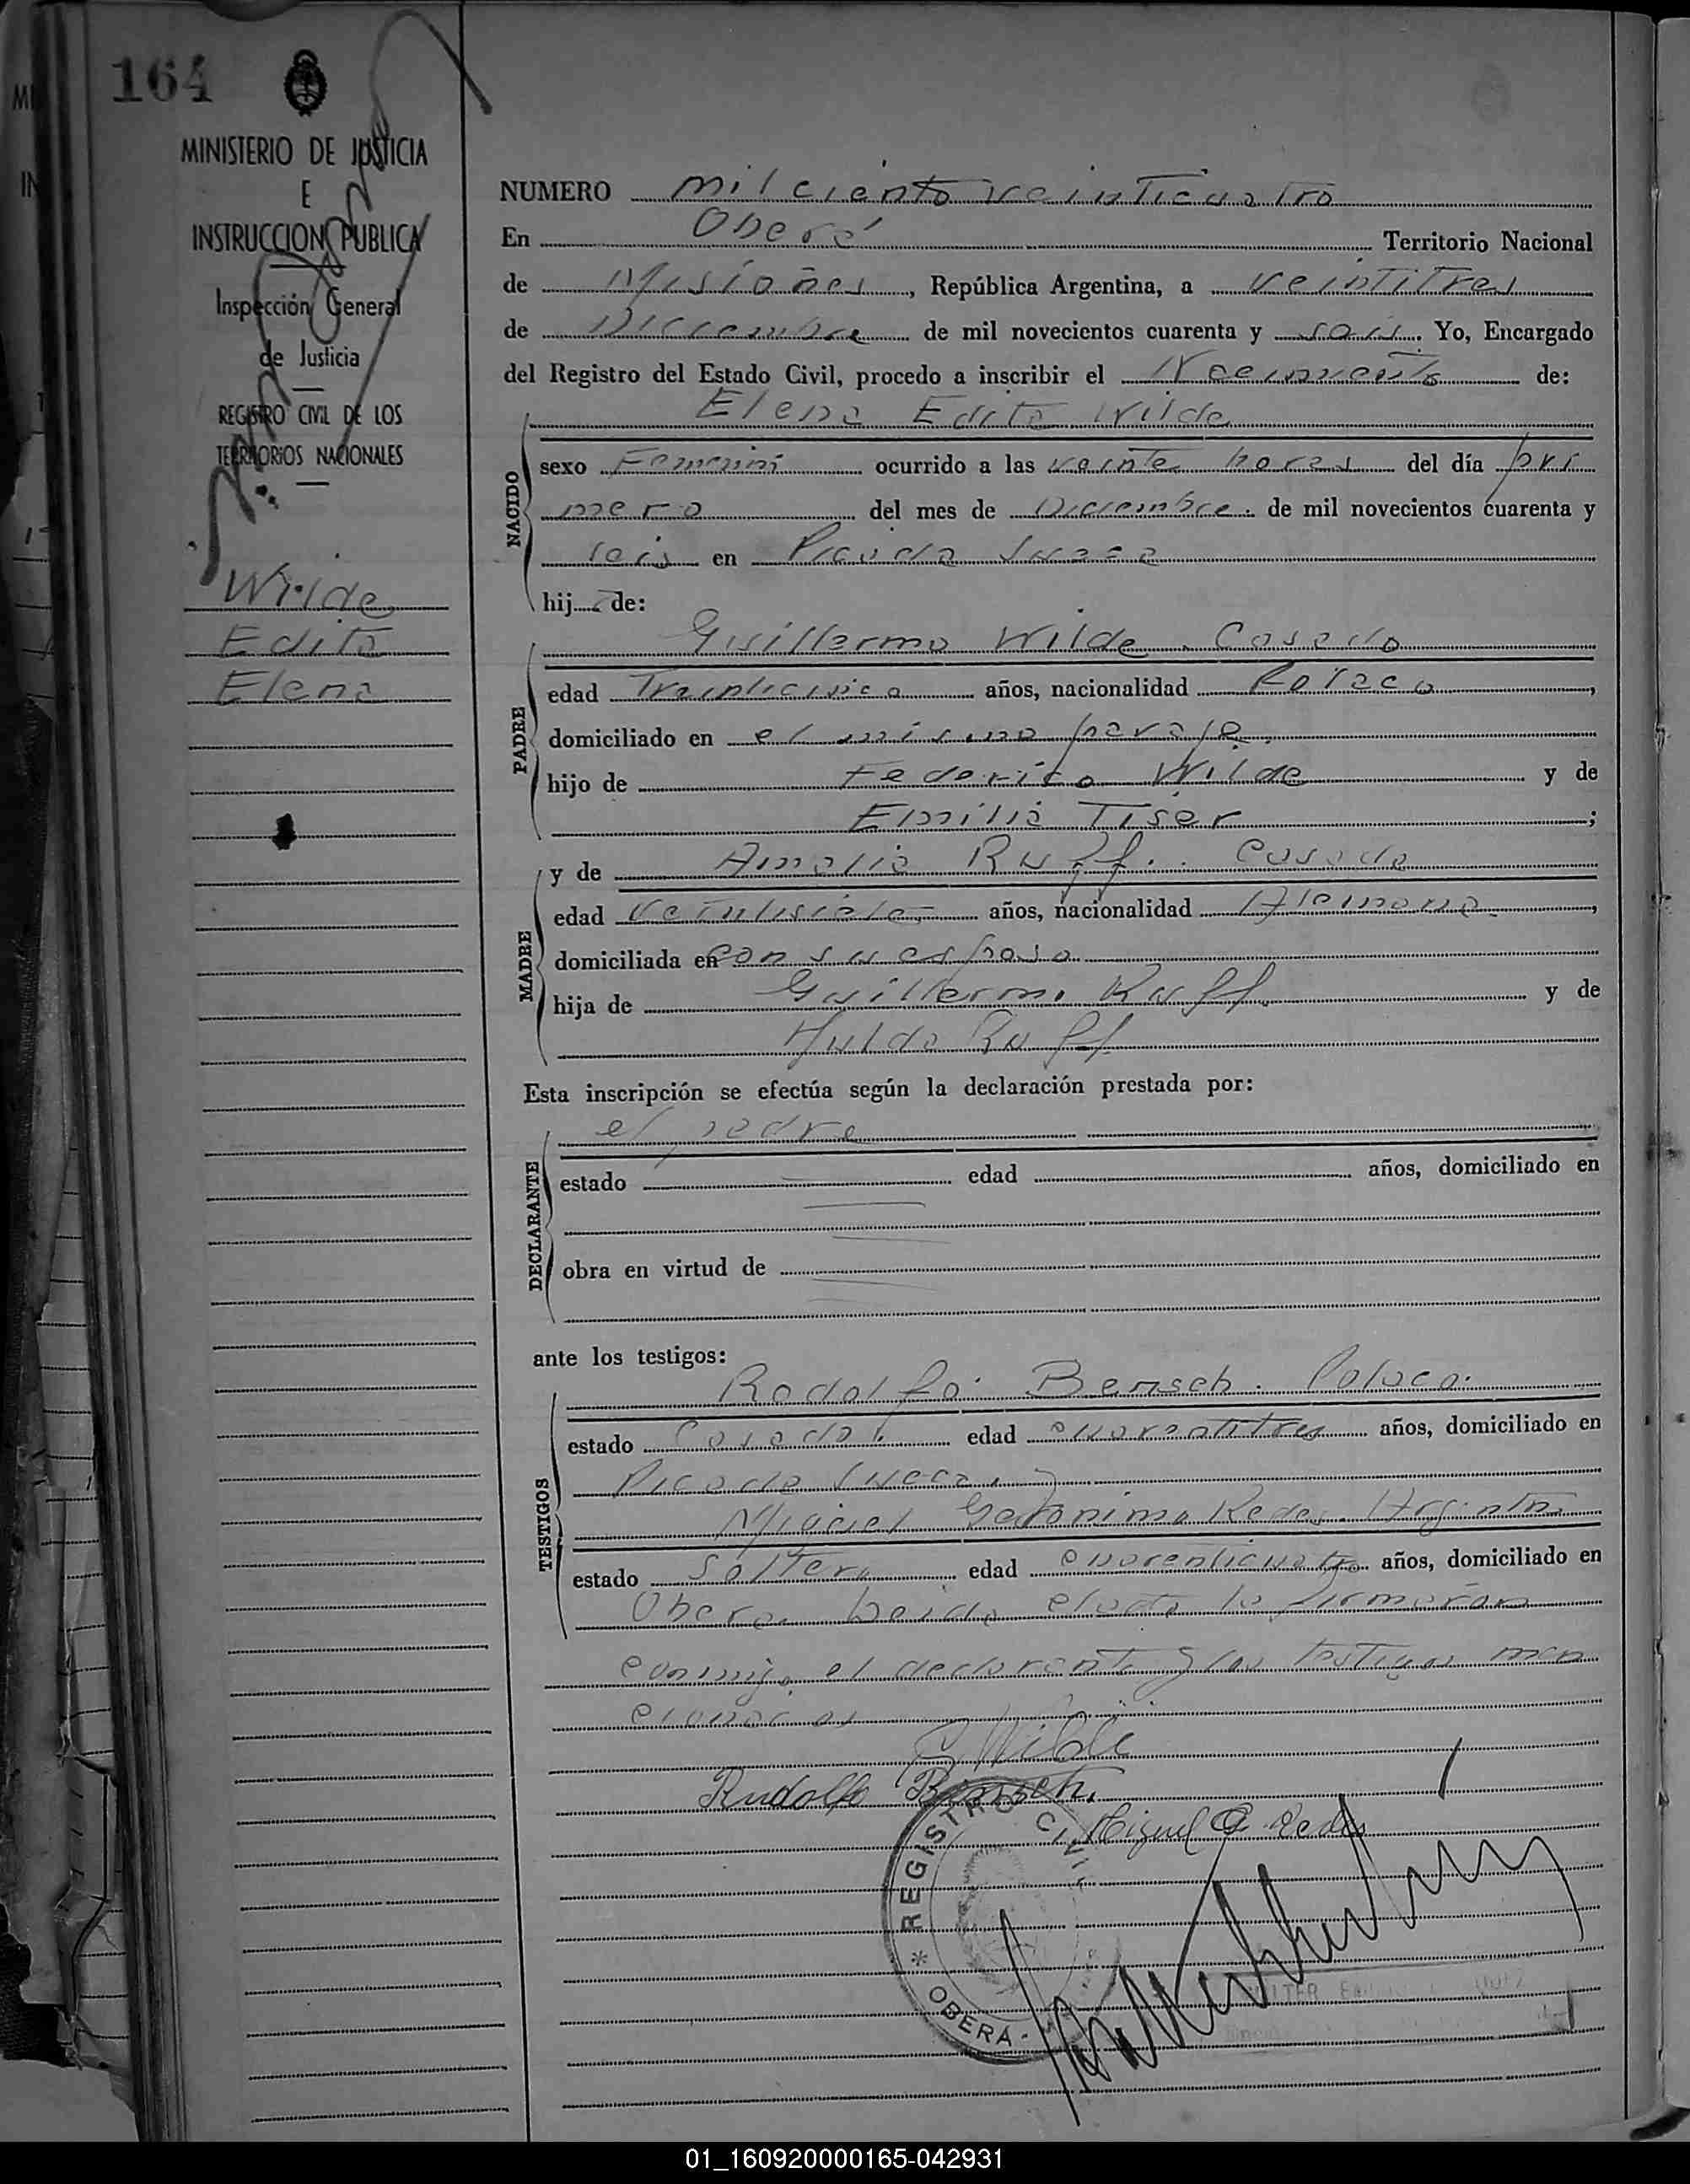 164
MINISTERIO DE JUSTICIA
E
INSTRUCCION PUBLICA
Inspección General
de Justicia
REGISTRO CIVIL DE LOS
TERRITORIOS NACIONALES
Wilde
Edita
Elena
NUMERO mil ciento veinticuatro
En Oberá Territorio Nacional
de Misiones, República Argentina, a veintitres
de Diciembre de mil novecientos cuarenta y seis. Yo, Encargado
del Registro del Estado Civil, procedo a inscribir el de:
Elena Edita Wilde
NACIDO
sexo Femenini ocurrido a las veinte horas del día pri
mero del mes de Diciembre. de mil novecientos cuarenta y
seis en Picada Sueca
hij a de:
PADRE
Guillermo Wilde. Casado
edad Treinticinco años, nacionalidad Polaco,
domiciliado en el mismo paraje.
hijo de Federico Wilde y de
Emilia Tiser;
MADRE
y de Amalia Ruff. Casada
edad veintisiete años, nacionalidad Alemana,
domiciliada en con su esposo
hija de Guillermo Ruff y de
Hulda Ruff
Esta inscripción se efectúa según la declaración prestada por:
DECLARANTE
el padre
estado edad años, domiciliado en
obra en virtud de
ante los testigos:
TESTIGOS
Rodolfo Bensch. Polaco.
estado Casado. edad cuarentitres años, domiciliado en
Picada Sueca. y
Miguel Geronimo Argentino
estado Soltero edad cuarenticuatro años, domiciliado en
Oberá. Leida el acta la firmarán
conmigo el declarante y los testigos men
cionados
G Wilde
Rudolfo Bensch.
Miguel G.
REGISTRO CIVIL
* OBERA -
01_160920000165-042931